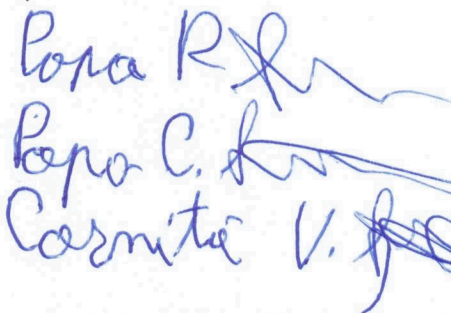 Popa R.
Popa C.
Cosmită V.